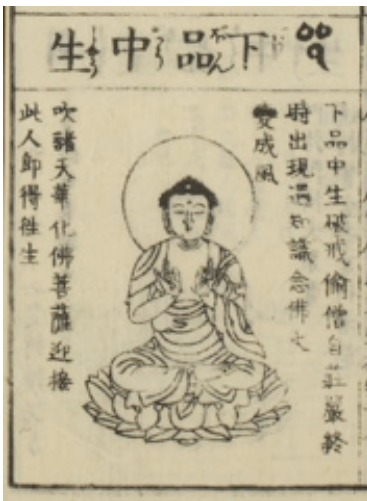 下品中生
下品中生破戒偷僧自莊嚴終
時出現遇知識念佛火
變成風
吹諸天華化佛菩薩迎接
此人即得徃生